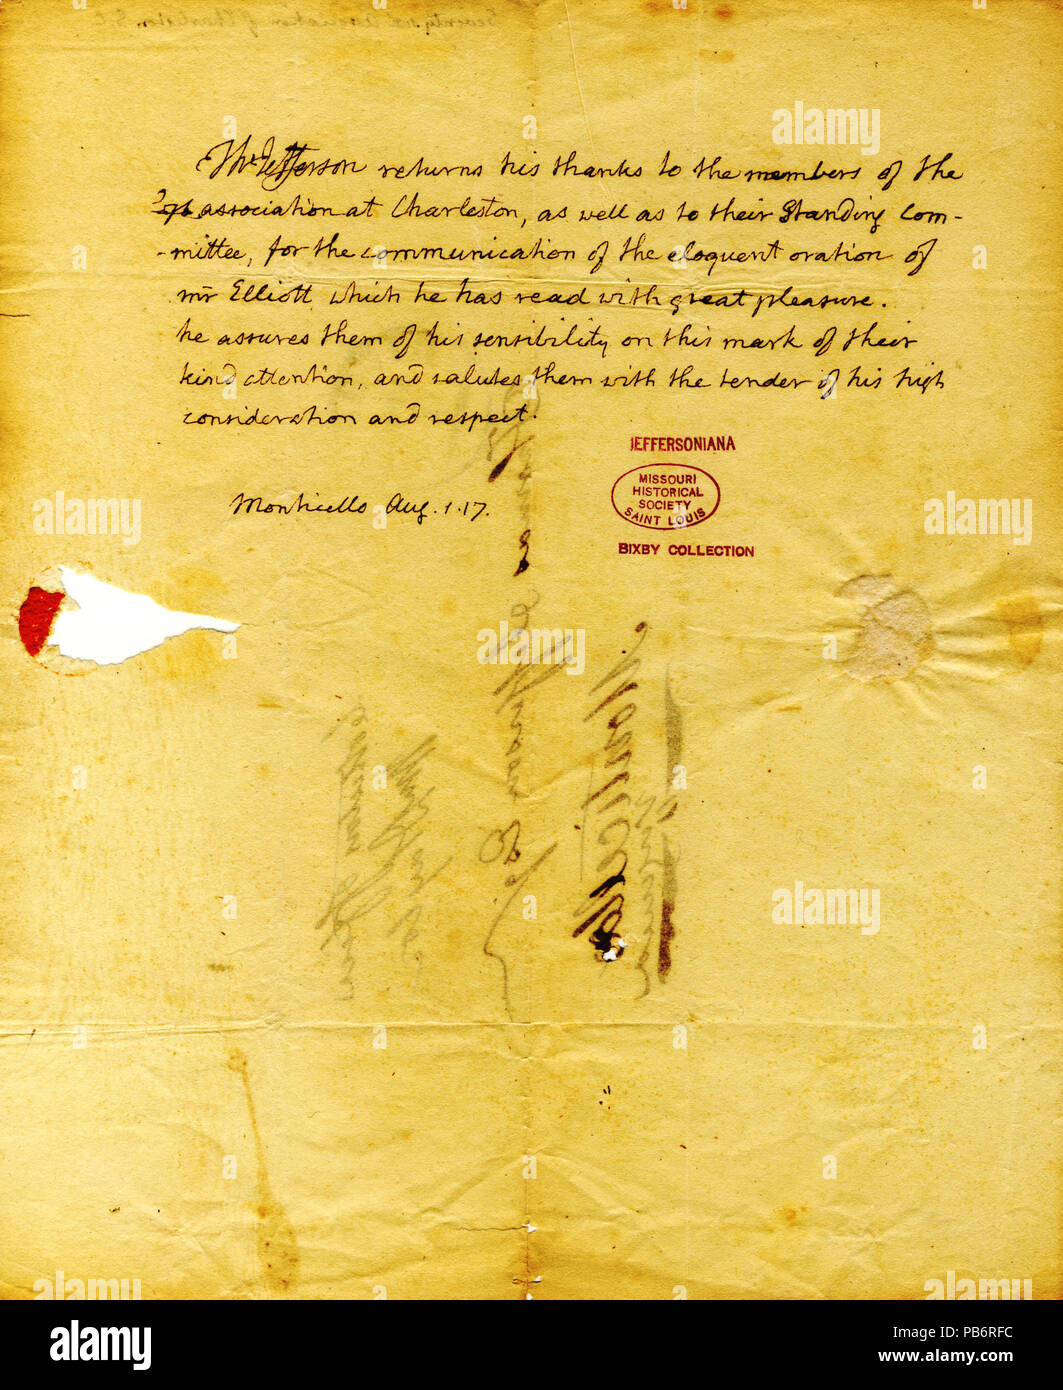 Th: Jefferson returns his thanks to the members of the
'76 association at Charleston, as well as to their Standing Com-
-mittee, for the communication of the eloquent oration of
mr Elliott which he has read with great pleasure.
he assures them of his sensibility on this mark of their
kind attention, and salutes them with the tender of his high
consideration and respect.
Monticello Aug. 1. 17.
JEFFERSONIANA
MISSOURI
HISTORICAL
SOCIETY
SAINT LOUIS
BIXBY COLLECTION
alamy
alamy
Image ID: PB6RFC
www.alamy.com